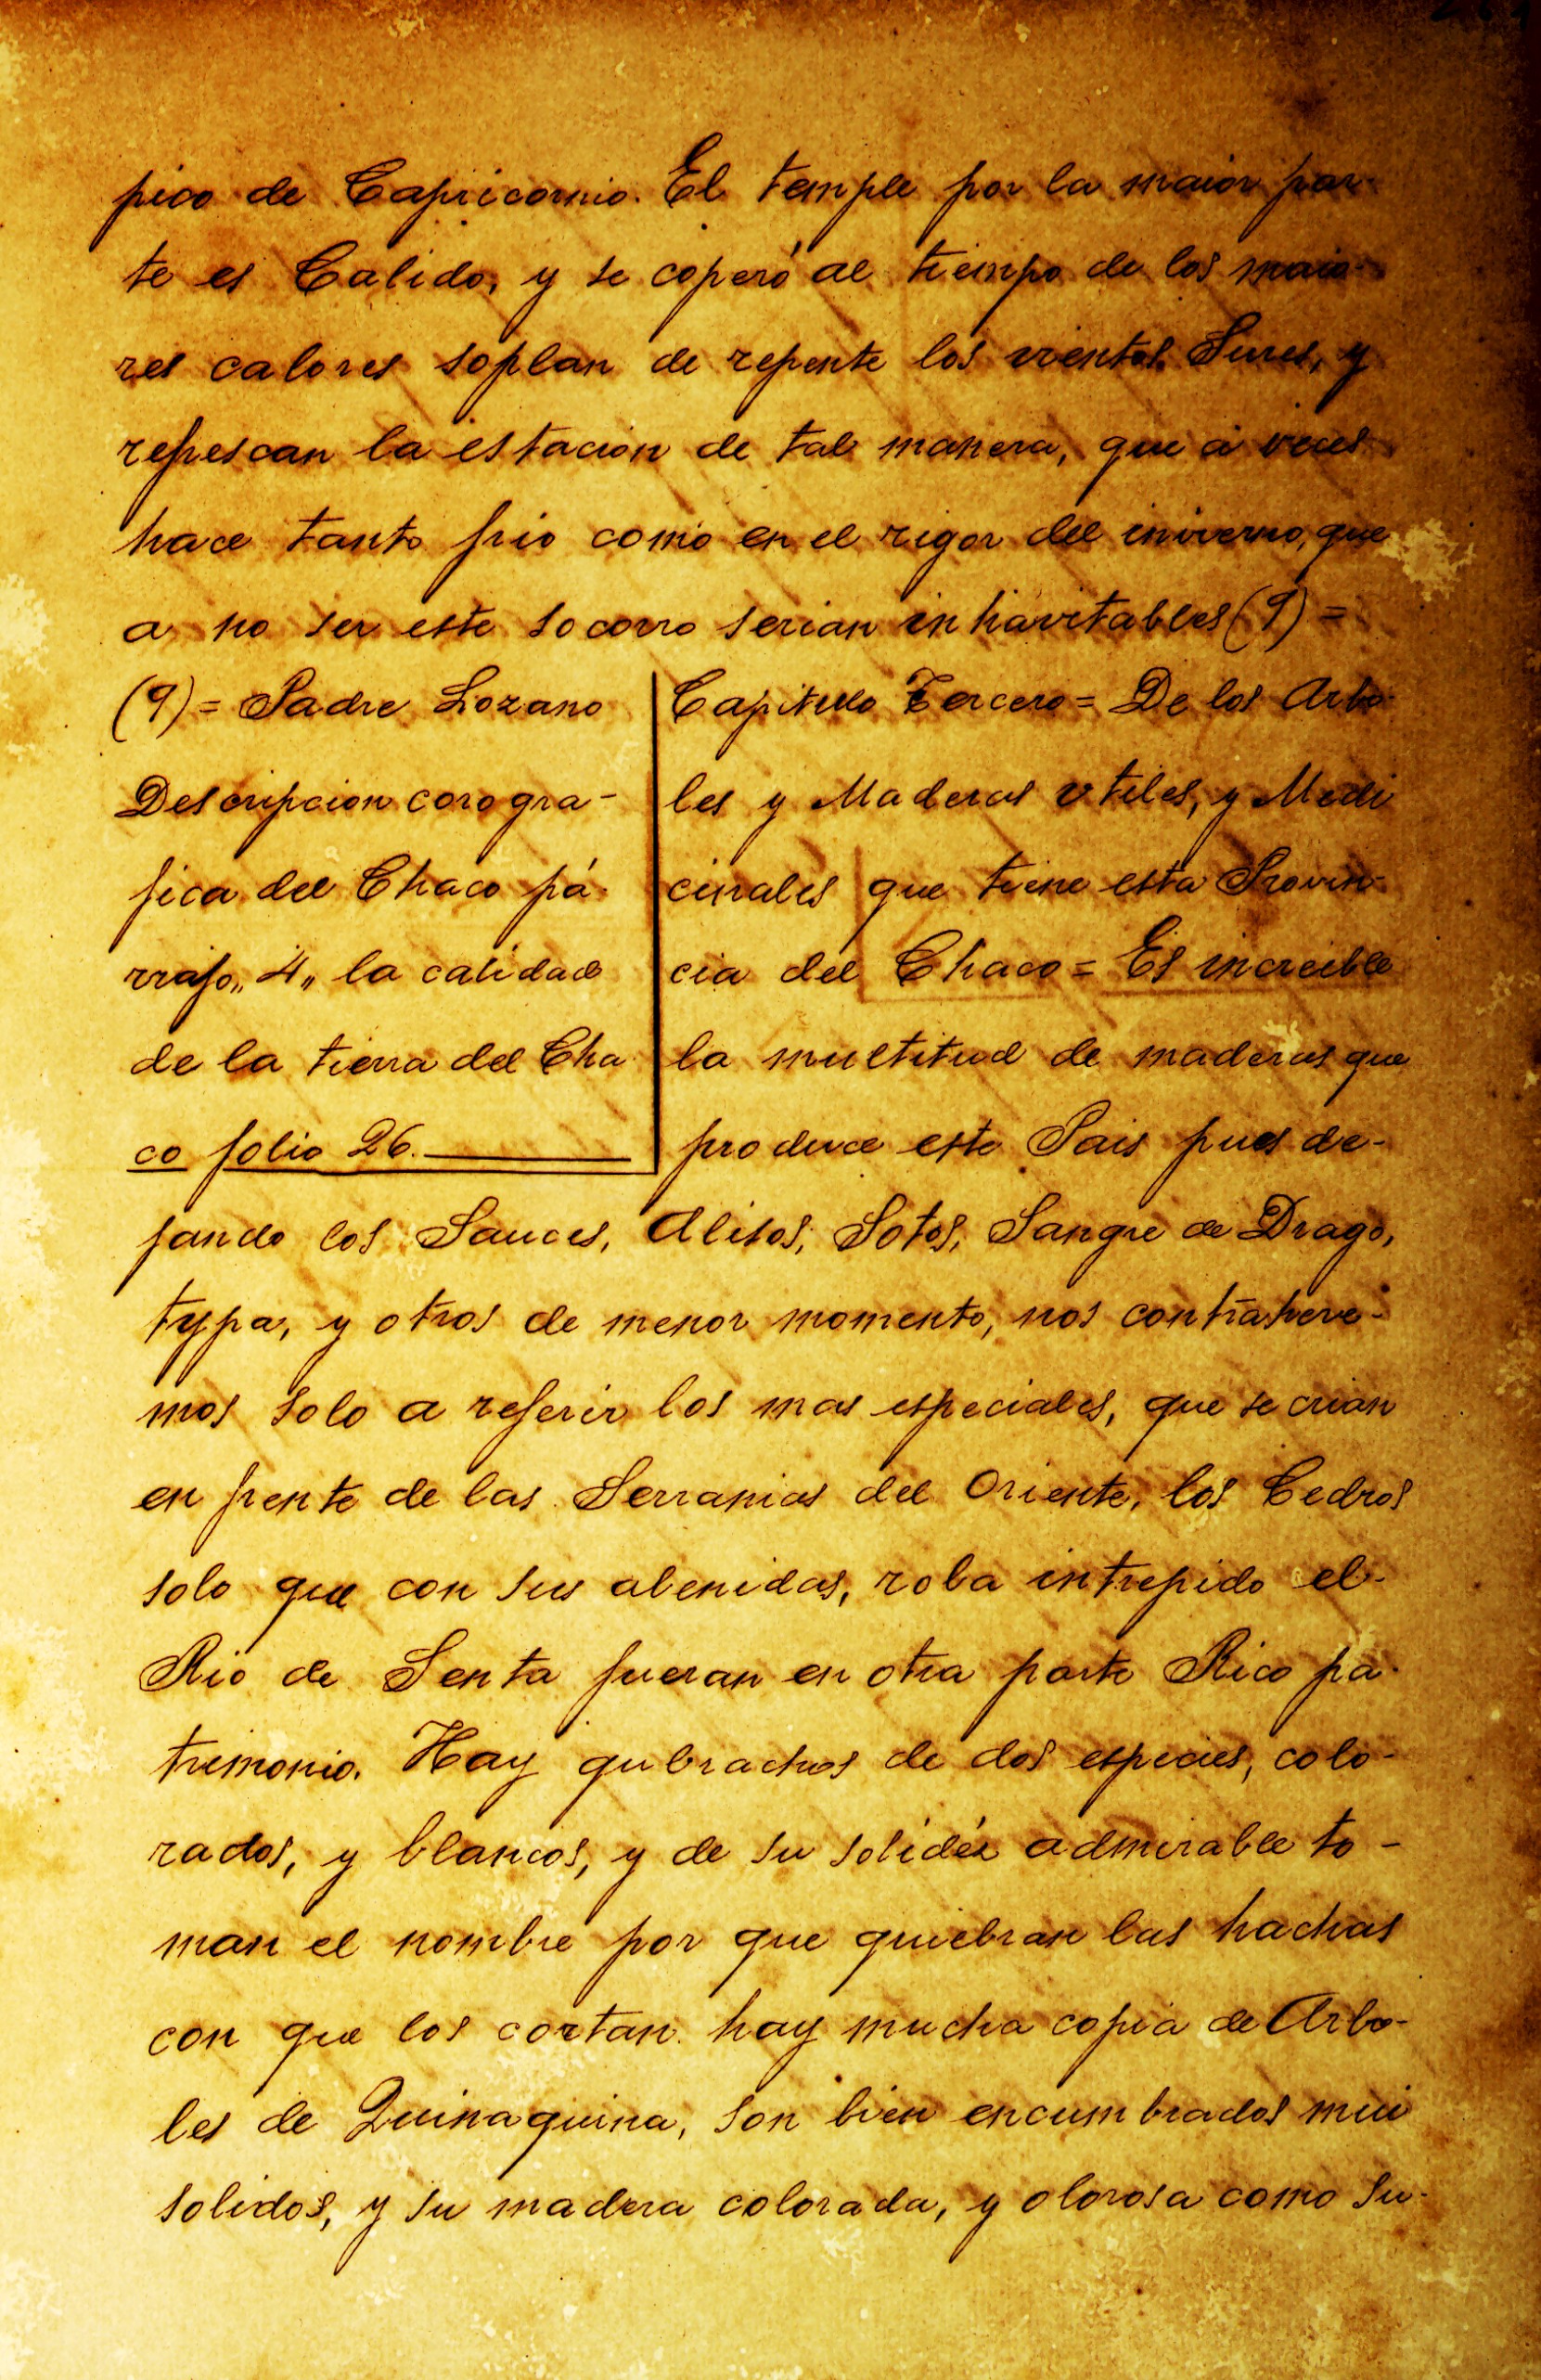 pico de Capricornio. El temple por la maior par-
te es Calido, y se coperó al tiempo de los maio-
res calores soplan de repente los vientos Sures, y
refrescan la estacion de tal manera, que á veces
hace tanto frio como en el rigor del invierno, que
a no ser este socorro serian inhavitables (9) =
(9) = Padre Lozano
Descripcion corogra-
fica del Chaco pá-
rrafo „4„ la calidad
de la tierra del Cha
co folio 26.
Capitulo Tercero = De los Arbo-
les y Maderas vtiles, y Medi
cinales que tiene esta Provin-
cia del Chaco = Es increible
la multitud de maderas que
produce este Pais pues de-
jando los Sauces, Alisos, Sotos, Sangre de Drago,
typa, y otros de menor momento, nos contrahere-
mos solo a referir los mas especiales, que se crian
en frente de las Serranias del Oriente, los Cedros
solo que con sus abenidas, roba intrepido el-
Rio de Senta fueran en otra parte Rico pa-
trimonio. Hay qubrachos de dos especies, colo-
rados, y blancos, y de su solidéz admirable to-
man el nombre por que quiebran las hachas
con que los cortan. hay mucha copia de Arbo-
les de Quinaquina, son bien encumbrados mui
solidos, y su madera colorada, y olorosa como su-